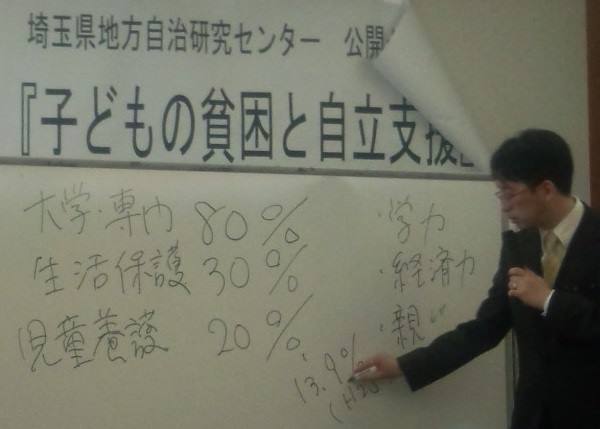 埼玉県地方自治研究センター 公開
『子どもの貧困と自立支援
大学・専門 80%
生活保護 30%
児童養護 20%
13.9%
(H20
・学力
・経済力
・親